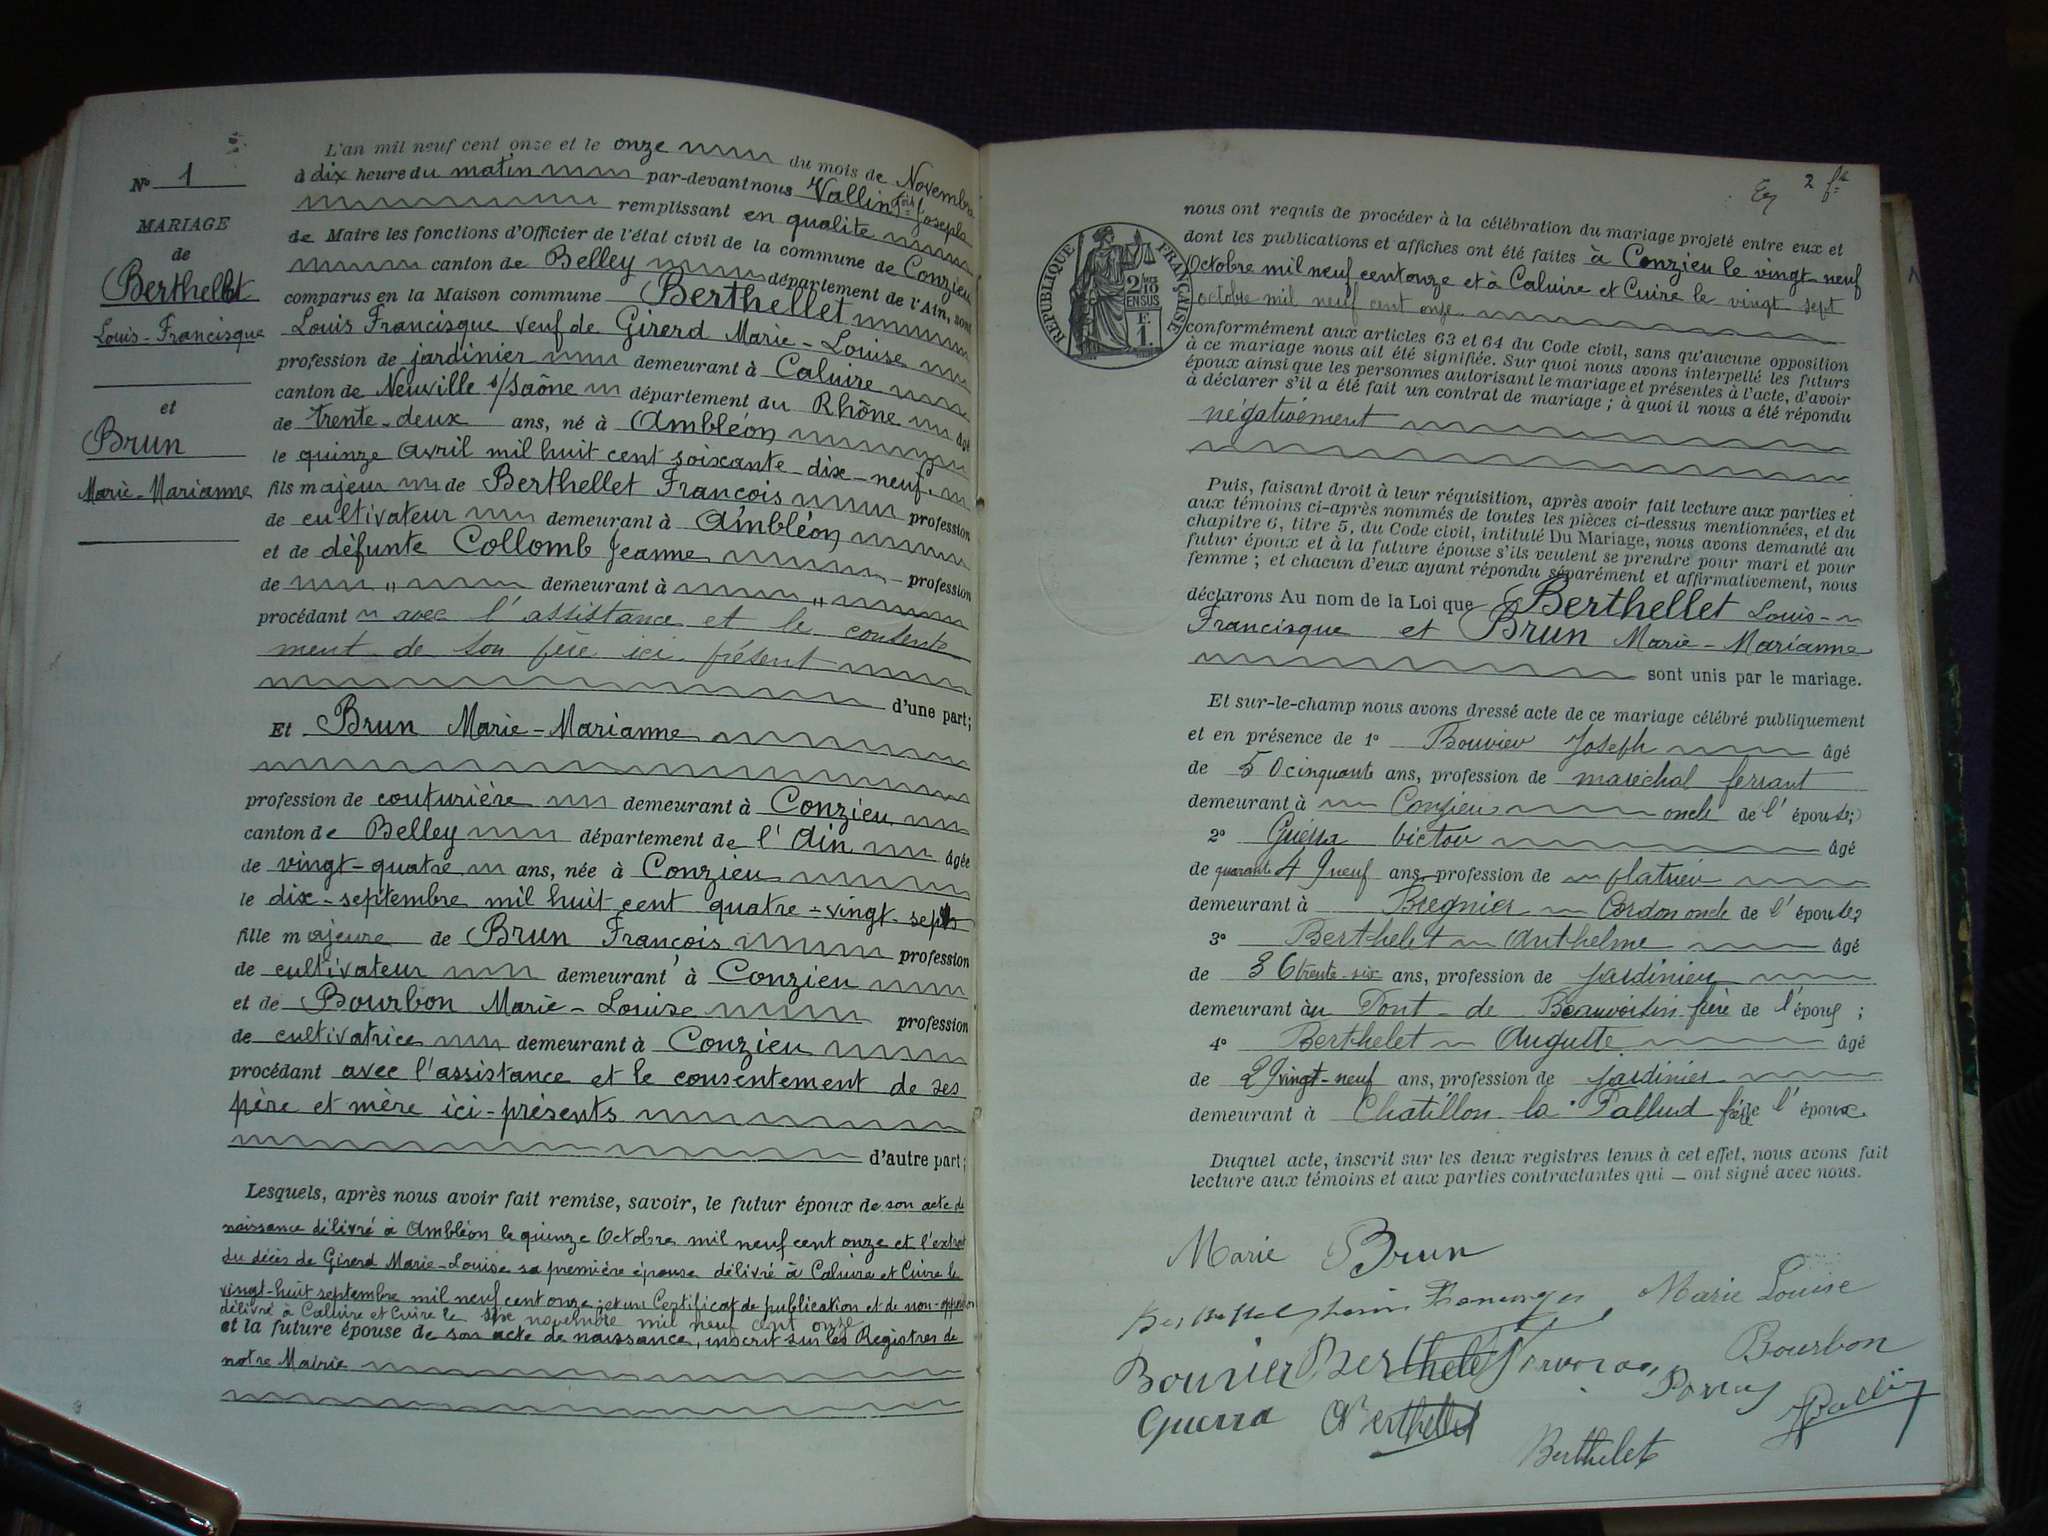 N° 1
MARIAGE
de
Berthellet
Louis-Francisque
et
Brun
Marie-Marianne
L'an mil neuf cent onze et le onze du mois de Novembre
à dix heure du matin par-devant nous Vallin Joseph
remplissant en qualité
de Maire les fonctions d'Officier de l'état civil de la commune de Conzieu
canton de Belley département de l'Ain, sont
comparus en la Maison commune Berthellet
Louis Francisque veuf de Girerd Marie-Louise
profession de jardinier demeurant à Caluire
canton de Neuville s/Saône département du Rhône âgé
de trente-deux ans, né à Ambléon
le quinze Avril mil huit cent soixante-dix-neuf
fils majeur de Berthellet François profession
de cultivateur demeurant à Ambléon
et de défunte Collomb Jeanne profession
de " demeurant à "
procédant avec l'assistance et le consente-
ment de son père ici présent
d'une part;
Et Brun Marie-Marianne
profession de couturière demeurant à Conzieu
canton de Belley département de l'Ain âgée
de vingt-quatre ans, née à Conzieu
le dix-septembre mil huit cent quatre-vingt-sept
fille majeure de Brun François profession
de cultivateur demeurant à Conzieu
et de Bourbon Marie-Louise profession
de cultivatrice demeurant à Conzieu
procédant avec l'assistance et le consentement de ses
père et mère ici-présents
d'autre part;
Lesquels, après nous avoir fait remise, savoir, le futur époux de son acte de
naissance délivré à Ambléon le quinze Octobre mil neuf cent onze et l'extrait
du décès de Girerd Marie-Louise sa première épouse délivré à Caluire et Cuire le
vingt-huit septembre mil neuf cent onze, et un Certificat de publication et de non-opposition
délivré à Caluire et Cuire le six novembre mil neuf cent onze
et la future épouse de son acte de naissance, inscrit sur les Registres de
notre Mairie
2 f
RÉPUBLIQUE FRANÇAISE
2/10
EN SUS
F.
1.
nous ont requis de procéder à la célébration du mariage projeté entre eux et
dont les publications et affiches ont été faites à Conzieu le vingt-neuf
Octobre mil neuf cent onze et à Caluire et Cuire le vingt-sept
octobre mil neuf cent onze
conformément aux articles 63 et 64 du Code civil, sans qu'aucune opposition
à ce mariage nous ait été signifiée. Sur quoi nous avons interpellé les futurs
époux ainsi que les personnes autorisant le mariage et présentes à l'acte, d'avoir
à déclarer s'il a été fait un contrat de mariage; à quoi il nous a été répondu
négativement
Puis, faisant droit à leur réquisition, après avoir fait lecture aux parties et
aux témoins ci-après nommés de toutes les pièces ci-dessus mentionnées, et du
chapitre 6, titre 5, du Code civil, intitulé Du Mariage, nous avons demandé au
futur époux et à la future épouse s'ils veulent se prendre pour mari et pour
femme; et chacun d'eux ayant répondu séparément et affirmativement, nous
déclarons Au nom de la Loi que Berthellet Louis-
Francisque et Brun Marie-Marianne
sont unis par le mariage.
Et sur-le-champ nous avons dressé acte de ce mariage célébré publiquement
et en présence de 1° Bouvier Joseph âgé
de 50 cinquante ans, profession de maréchal ferrant
demeurant à Conzieu oncle de l'épouse;
2° Guerra Victor âgé
de quarante 49 neuf ans, profession de platrier
demeurant à Bregnier Cordon oncle de l'épouse;
3° Berthelet Anthelme âgé
de 36 trente-six ans, profession de jardinier
demeurant au Pont-de Beauvoisin frère de l'époux;
4° Berthelet Auguste âgé
de 29 vingt-neuf ans, profession de jardinier
demeurant à Chatillon la Pallud frère de l'époux.
Duquel acte, inscrit sur les deux registres tenus à cet effet, nous avons fait
lecture aux témoins et aux parties contractantes qui — ont signé avec nous.
Marie Brun
Marie Louise
Bourbon
Bouvier Berthelet
Guerra Berthellet
Berthelet